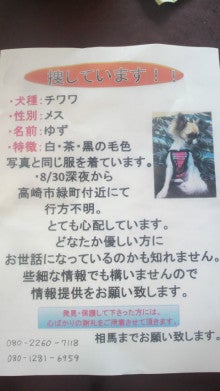 捜しています！！
・犬種：チワワ
・性別：メス
・名前：ゆず
・特徴：白・茶・黒の毛色
写真と同じ服を着ています。
・8/30深夜から
高崎市緑町付近にて
行方不明。
とても心配しています。
どなたか優しい方に
お世話になっているのかも知れません。
些細な情報でも構いませんので
情報提供をお願い致します。
発見・保護して下さった方には、
心ばかりの謝礼をご用意させて頂きます。
080-2260-7118
080-1281-6959
相馬までお願い致します。